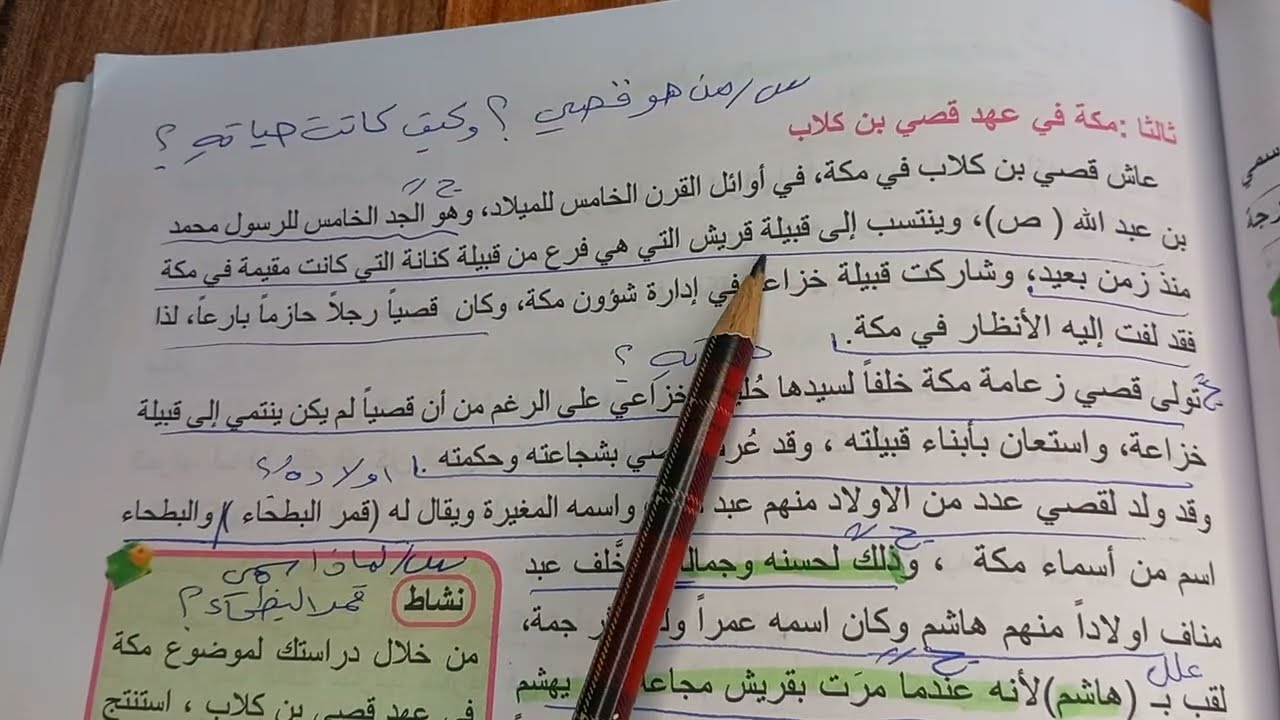 س/ من هو قصي ؟ وكيف كانت حياته ؟
ثالثا :مكة في عهد قصي بن كلاب
عاش قصي بن كلاب في مكة، في أوائل القرن الخامس للميلاد، وهو الجد الخامس للرسول محمد
بن عبد الله ( ص)، وينتسب إلى قبيلة قريش التي هي فرع من قبيلة كنانة التي كانت مقيمة في مكة
منذ زمن بعيد، وشاركت قبيلة في إدارة شؤون مكة، وكان قصياً رجلاً حازماً بارعاً، لذا
فقد لفت إليه الأنظار في مكة.
تولى قصي زعامة مكة خلفاً لسيدها على الرغم من أن قصياً لم يكن ينتمي إلى قبيلة
خزاعة، واستعان بأبناء قبيلته ، وقد بشجاعته وحكمته .
اولاده ؟
وقد ولد لقصي عدد من الاولاد منهم عبد واسمه المغيرة ويقال له (قمر البطحاء ) والبطحاء
اسم من أسماء مكة ، وذلك لحسنه خَلف عبد
مناف اولاداً منهم هاشم وكان اسمه عمراً جمة،
علل
لقب بـ (هاشم)لأنه عندما مرَت بقريش يهشم
س/ لماذا سمي
قمر البطحاء ؟
نشاط
من خلال دراستك لموضوع مكة
في عهد قصي بن كلاب ، استنتج
سمي